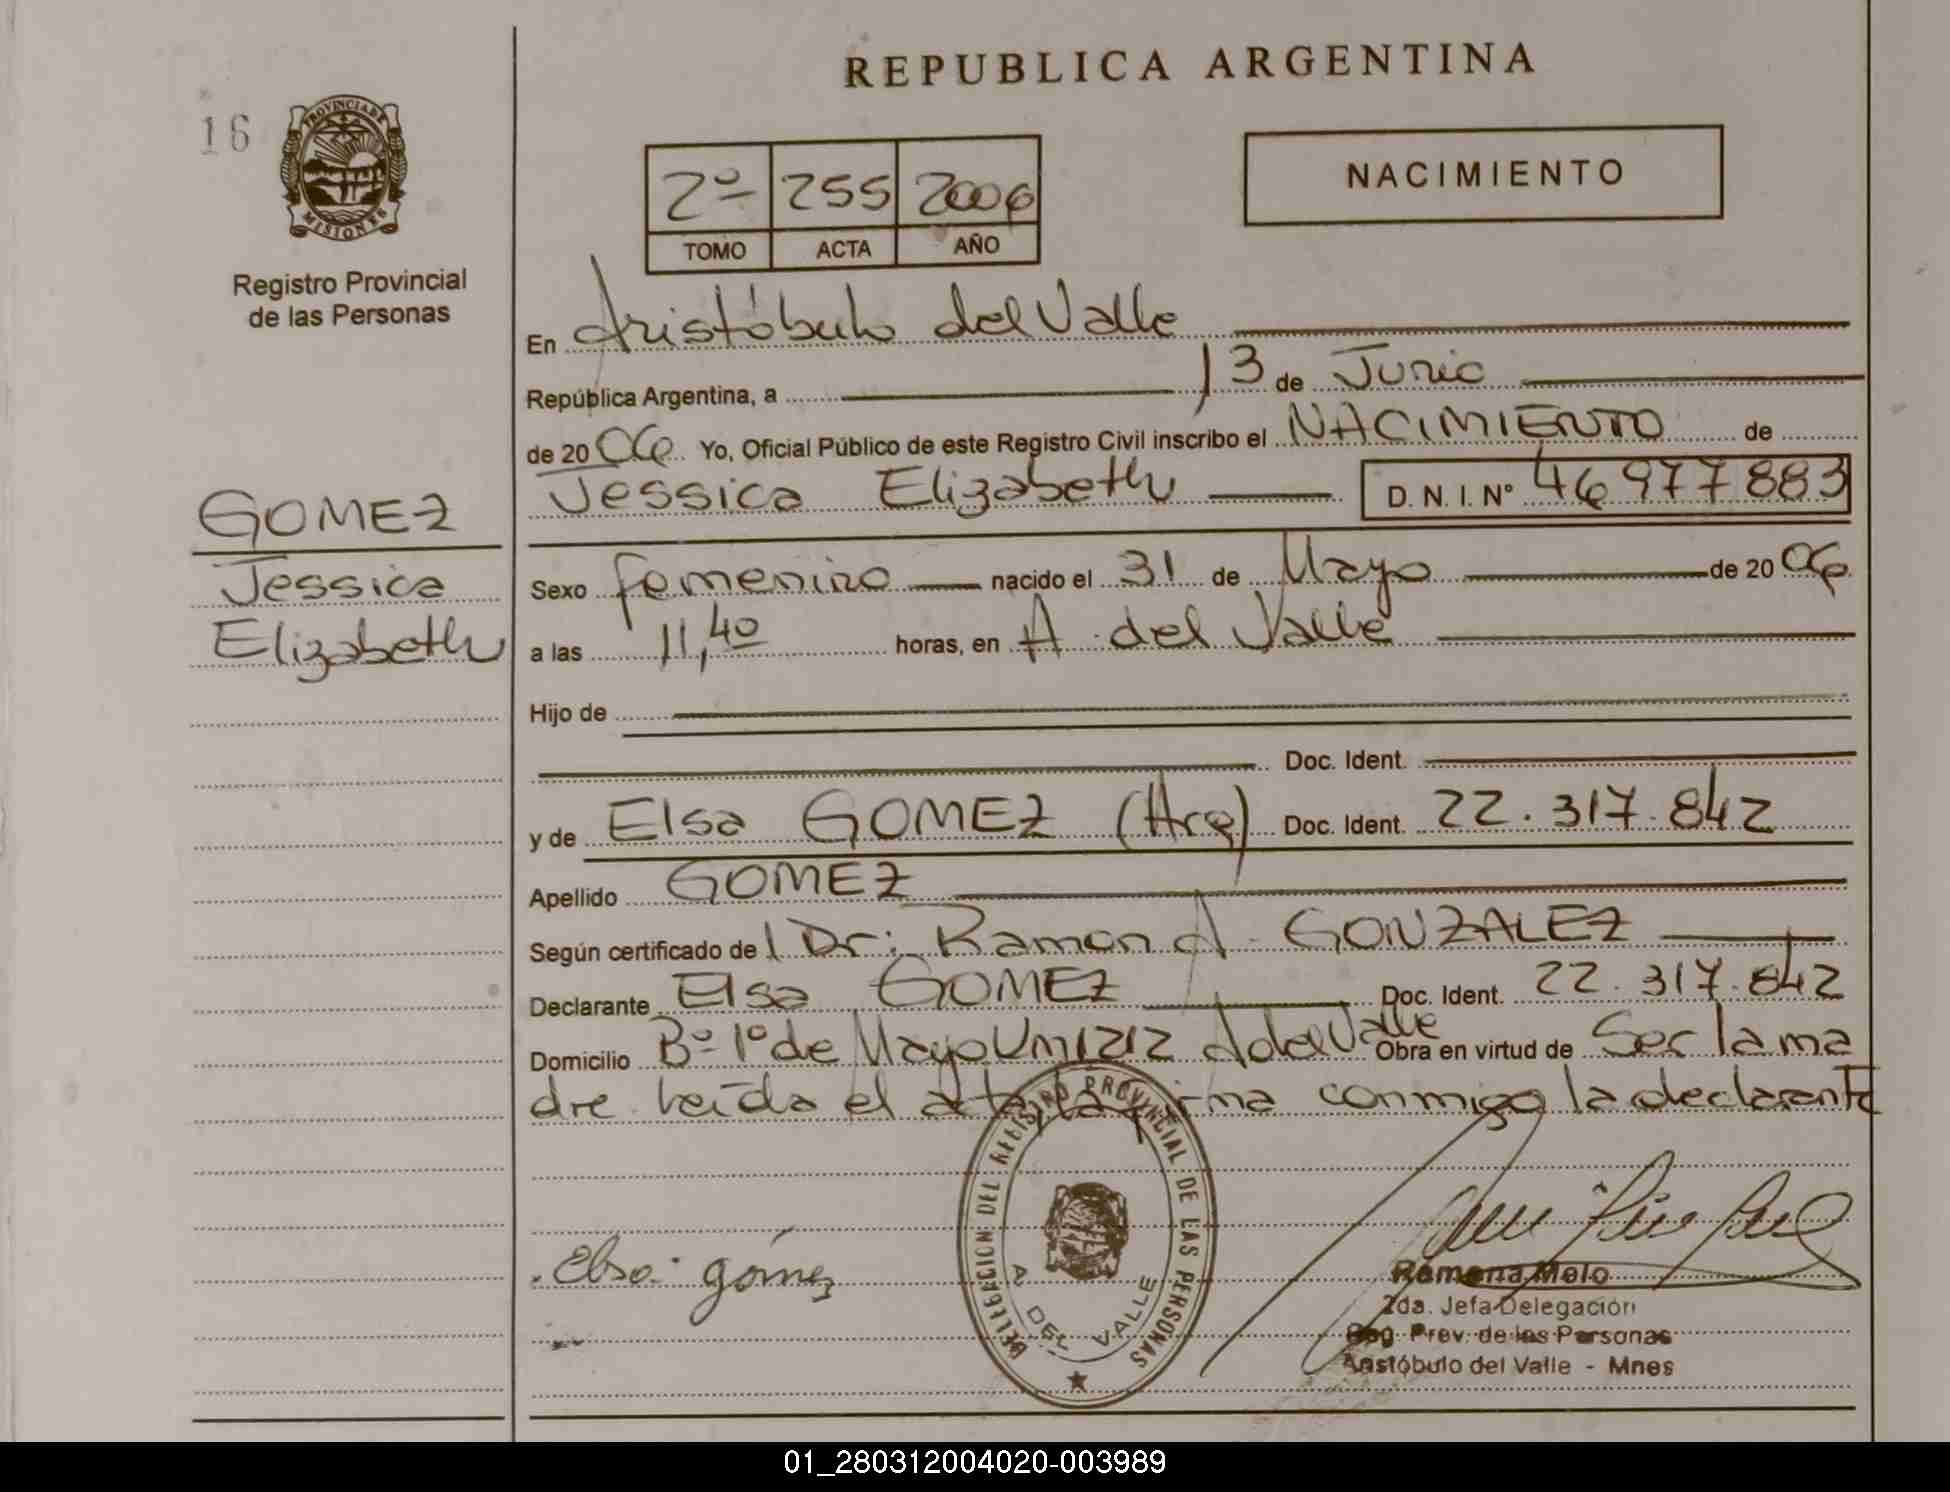 REPUBLICA ARGENTINA
16
PROVINCIA DE MISIONES
Registro Provincial
de las Personas
2º 255 2006
TOMO ACTA AÑO
NACIMIENTO
En Aristóbulo del Valle
República Argentina, a 13 de Junio
de 2006 Yo, Oficial Público de este Registro Civil inscribo el NACIMIENTO de
Jessica Elizabeth D.N.I. Nº 46977883
GOMEZ
Jessica
Elizabeth
Sexo femenino nacido el 31 de Mayo de 2006
a las 11,40 horas, en A del Valle
Hijo de
Doc. Ident.
y de Elsa GOMEZ (Arg) Doc. Ident. 22.317.842
Apellido GOMEZ
Según certificado del Dr: Ramon A. GONZALEZ
Declarante Elsa GOMEZ Doc. Ident. 22.317.842
Domicilio Bº 1º de Mayo Um1212 A del Valle Obra en virtud de Ser la ma
dre leída el acta, la firma conmigo la declarante
DELEGACION DEL REGISTRO PROVINCIAL DE LAS PERSONAS
A. DEL VALLE
Elsa gómez
Ramona Melo
2da. Jefa Delegación
Reg. Prov. de las Personas
Aristóbulo del Valle - Mnes
01_280312004020-003989